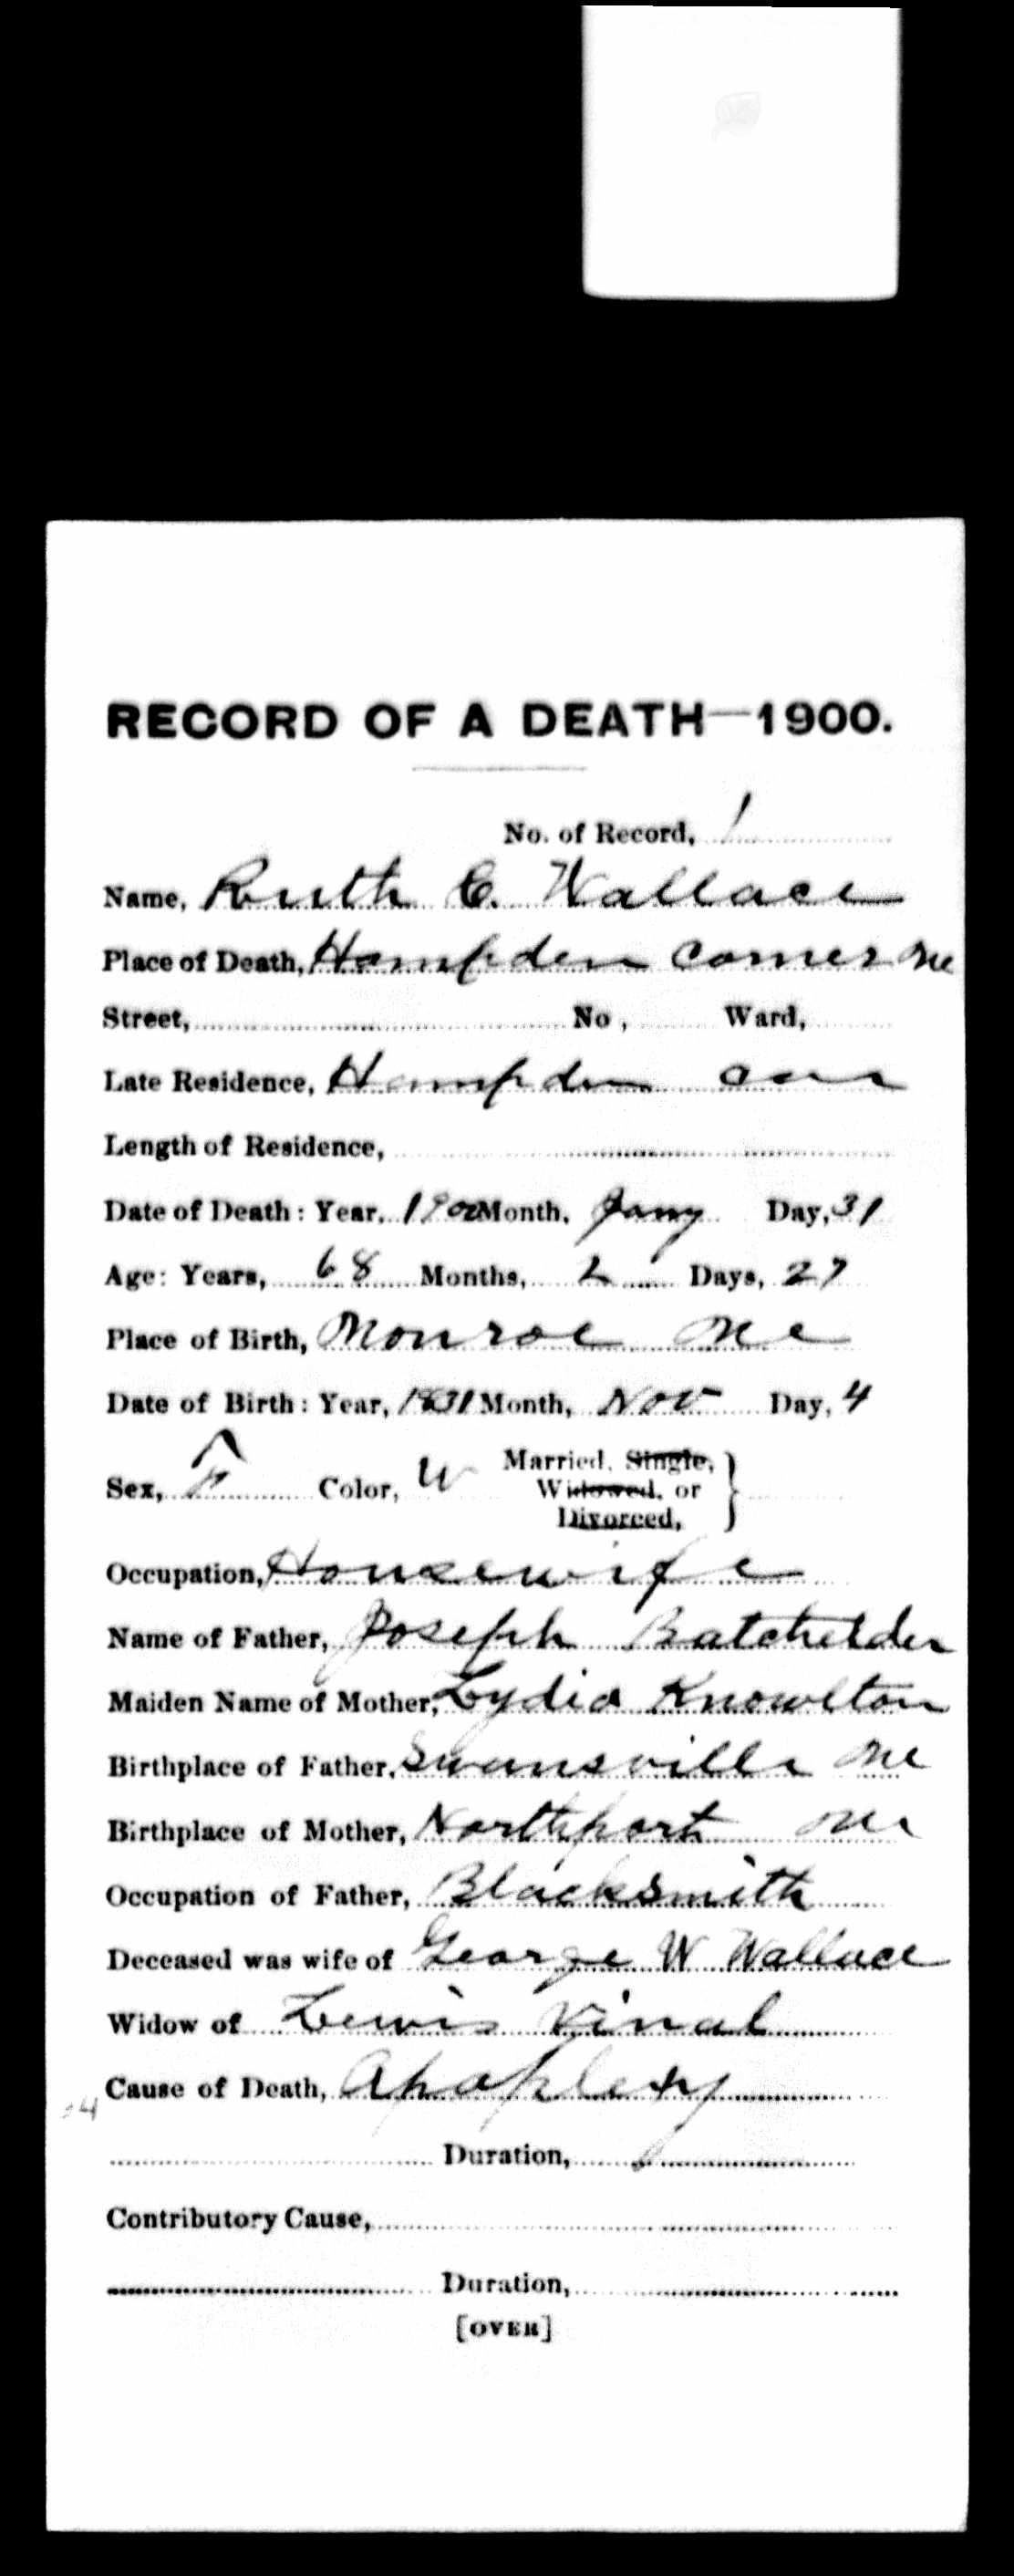 RECORD OF A DEATH—1900.
No. of Record, 1
Name, Ruth C. Wallace
Place of Death, Hampden Corner Me
Street, No, Ward,
Late Residence, Hampden Cor
Length of Residence,
Date of Death: Year, 1900 Month, Jany Day, 31
Age: Years, 68 Months, 2 Days, 27
Place of Birth, Monroe Me
Date of Birth: Year, 1831 Month, Nov Day, 4
Sex, F Color, W Married, Single,
Widowed, or
Divorced,
Occupation, Housewife
Name of Father, Joseph Batchelder
Maiden Name of Mother, Lydia Knowlton
Birthplace of Father, Swansville Me
Birthplace of Mother, Northport Me
Occupation of Father, Blacksmith
Deceased was wife of George W Wallace
Widow of Lewis Vinal
Cause of Death, Apoplexy
Duration,
Contributory Cause,
Duration,
[OVER]